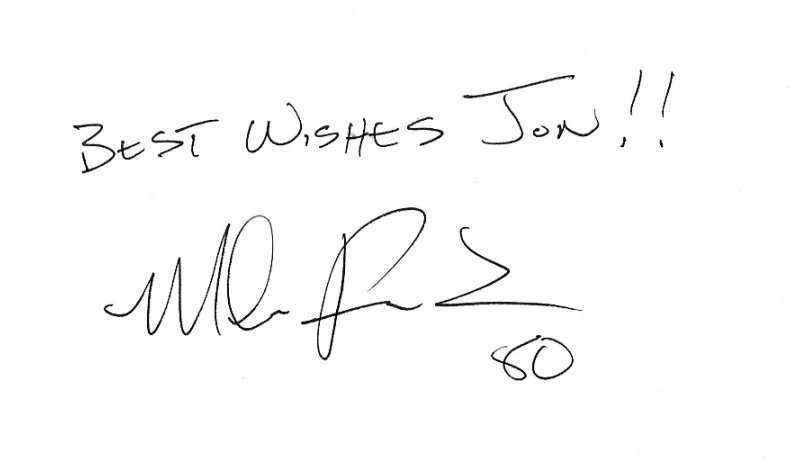 BEST WISHES JON!!
80